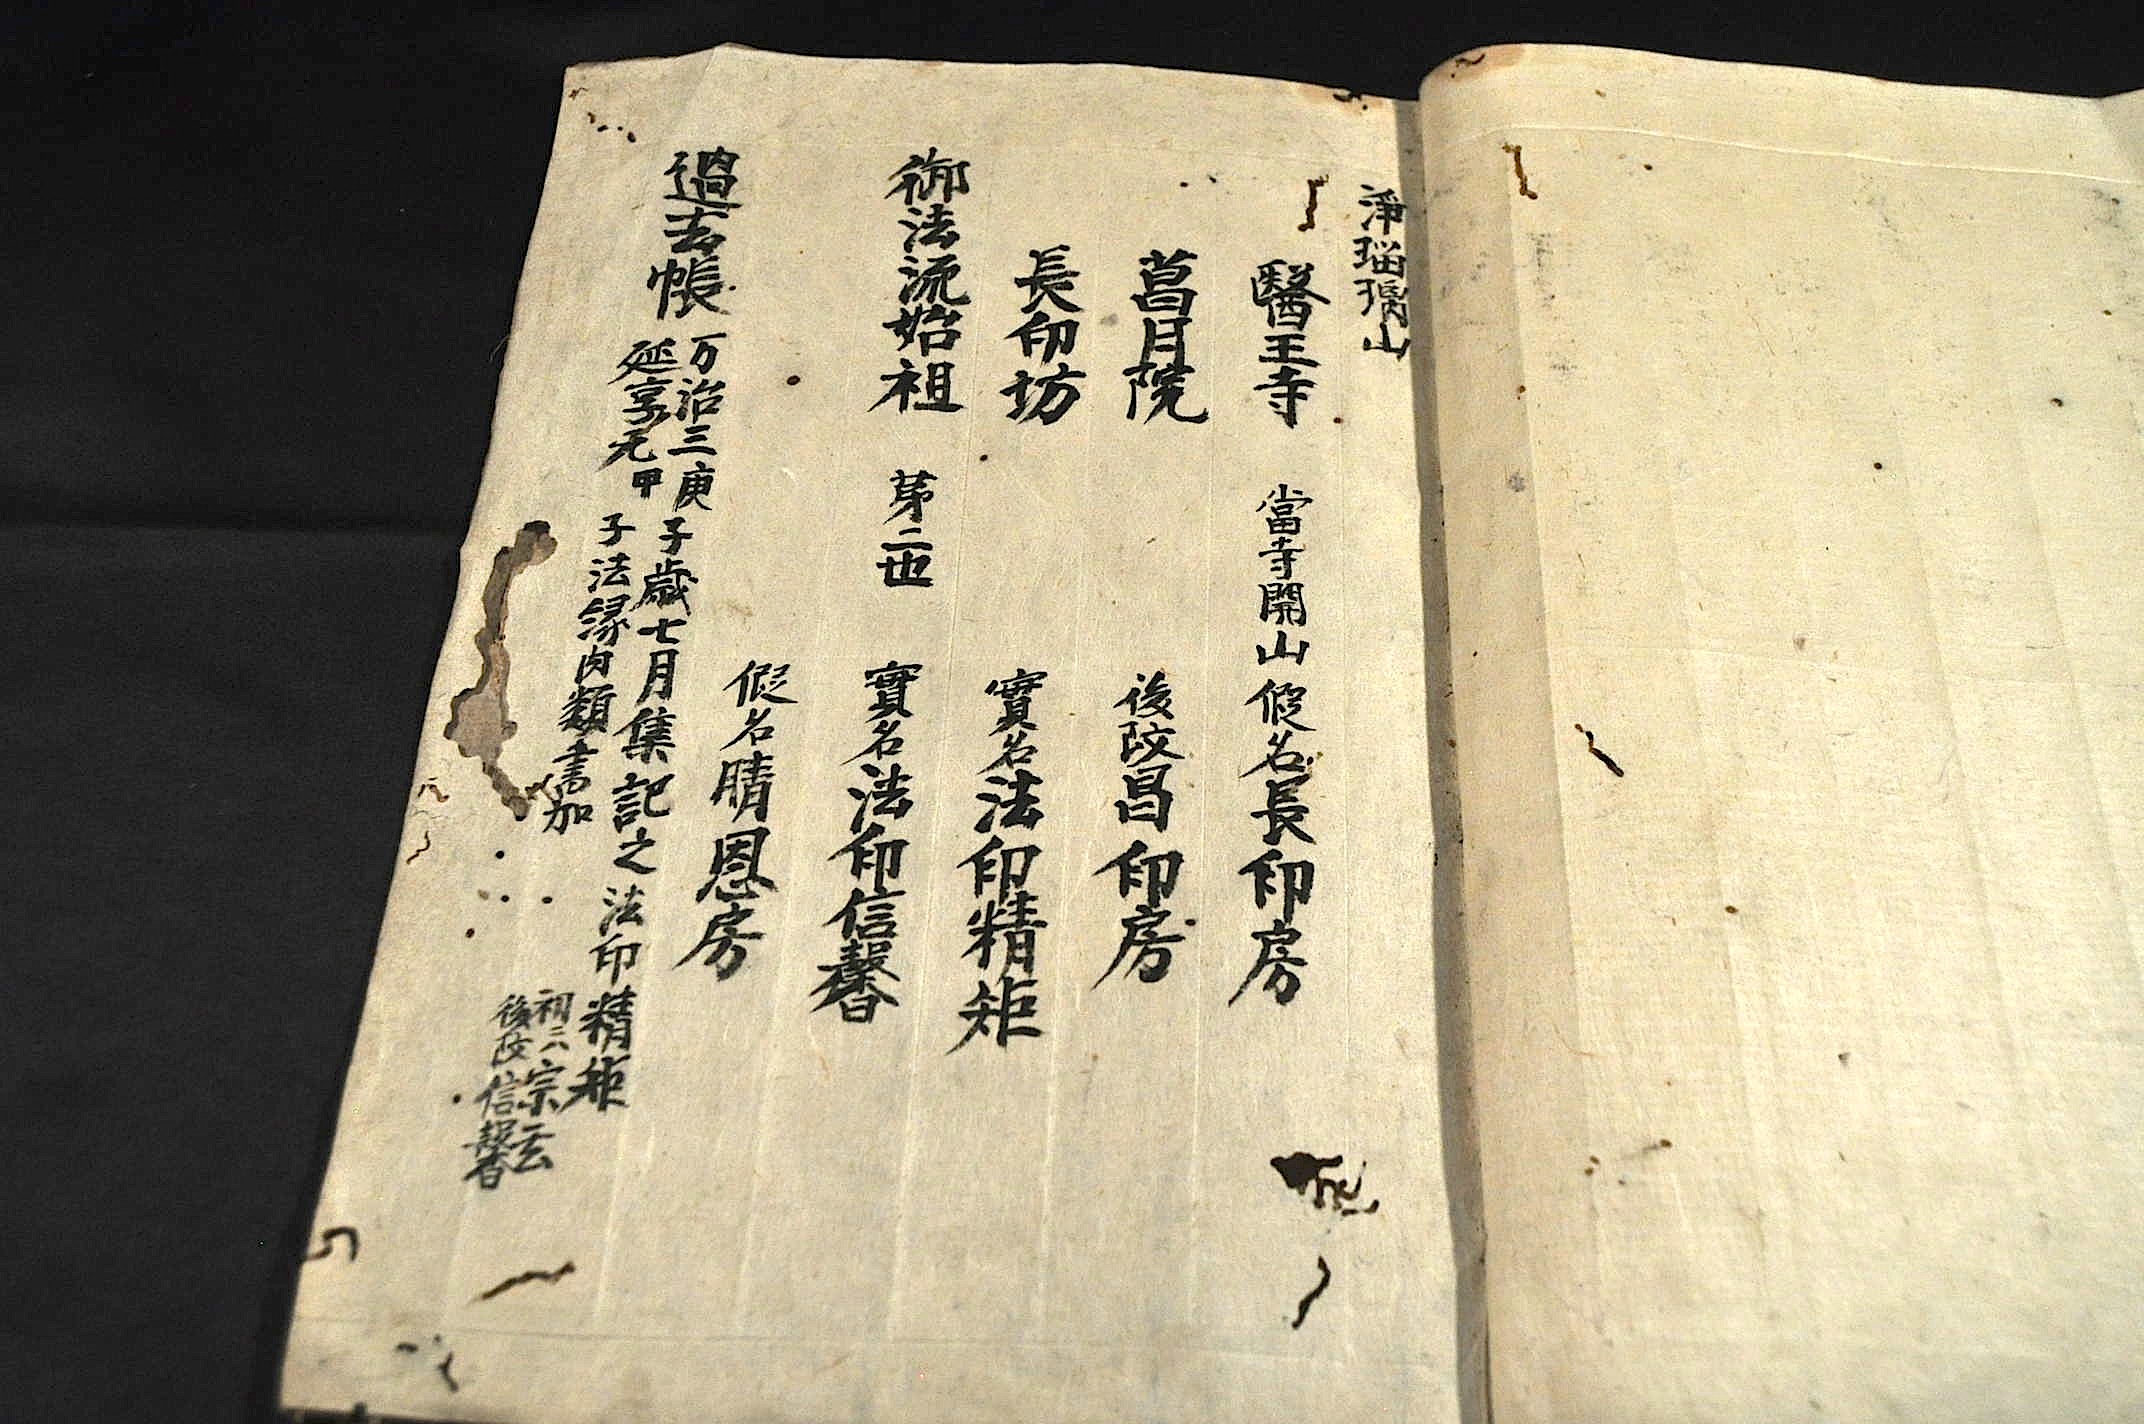 淨瑠璃山
醫王寺 當寺開山 假名長印房
菖月院 後改昌印房
長印坊 實名法印精矩
御法流始祖 苐二世 實名法印信馨
假名晴恩房
過去帳 万治三庚子歳七月集記之 法印精矩
延享元甲子法縁肉類書加 初ニハ宗云
後改信馨